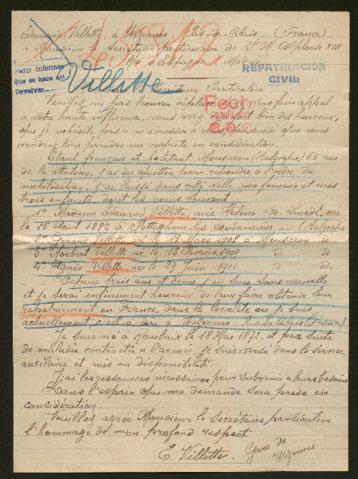 Edouard Villette, à Wizernes Pas-de-Calais, (France)
à Monsieur le Secrétaire Particulier de S. M. Alphonse XIII
Roi d'Espagne Madrid
Pedir informes
Que se hace así
Devolver
REPATRIACIÓN
CIVIL
Villette
Monsieur le Secrétaire Particulier
Veuillez ne pas trouver
fais appel
à votre haute influence, vous avez
bien des heureux,
que je n'hésite pas à m'adresser à
que vous
voudrez bien prendre ma requête en considération.
Etant français et habitant Mouscron (Belgique) 65 rue
de la Station, j'ai dû quitter pour répondre à l'ordre de
mobilisation, j'ai laissé dans cette ville ma femme et mes
trois enfants, dont les noms suivent
1° Madame Edouard Villette, née
le
15 Août 1882 à
2° Gérard Villette né le
Mars 1901 à Mouscron
3° Norbert Villette né le 15 Février 1909 d°
4° Agnès Villette née le 29 juin 1911 d°
Depuis trois ans et demi, j'en suis sans nouvelle
et je serai infiniment heureux de leur faire obtenir leur
rapatriement en France dans la localité où je suis
actuellement, c'est à dire à Wizernes Pas-de-Calais (France)
Je suis né à Roubaix le 18 Mai 1872, et par suite
de maladie contractée à l'armée je suis versé dans le service
auxiliaire et mis en disponibilité.
J'ai les ressources nécessaires pour subvenir à leurs besoins
Dans l'espoir que ma demande sera prise en
considération.
Veuillez agréer Monsieur le Secrétaire particulier
l'hommage de mon profond respect
E. Villette
Gare de
Wizernes